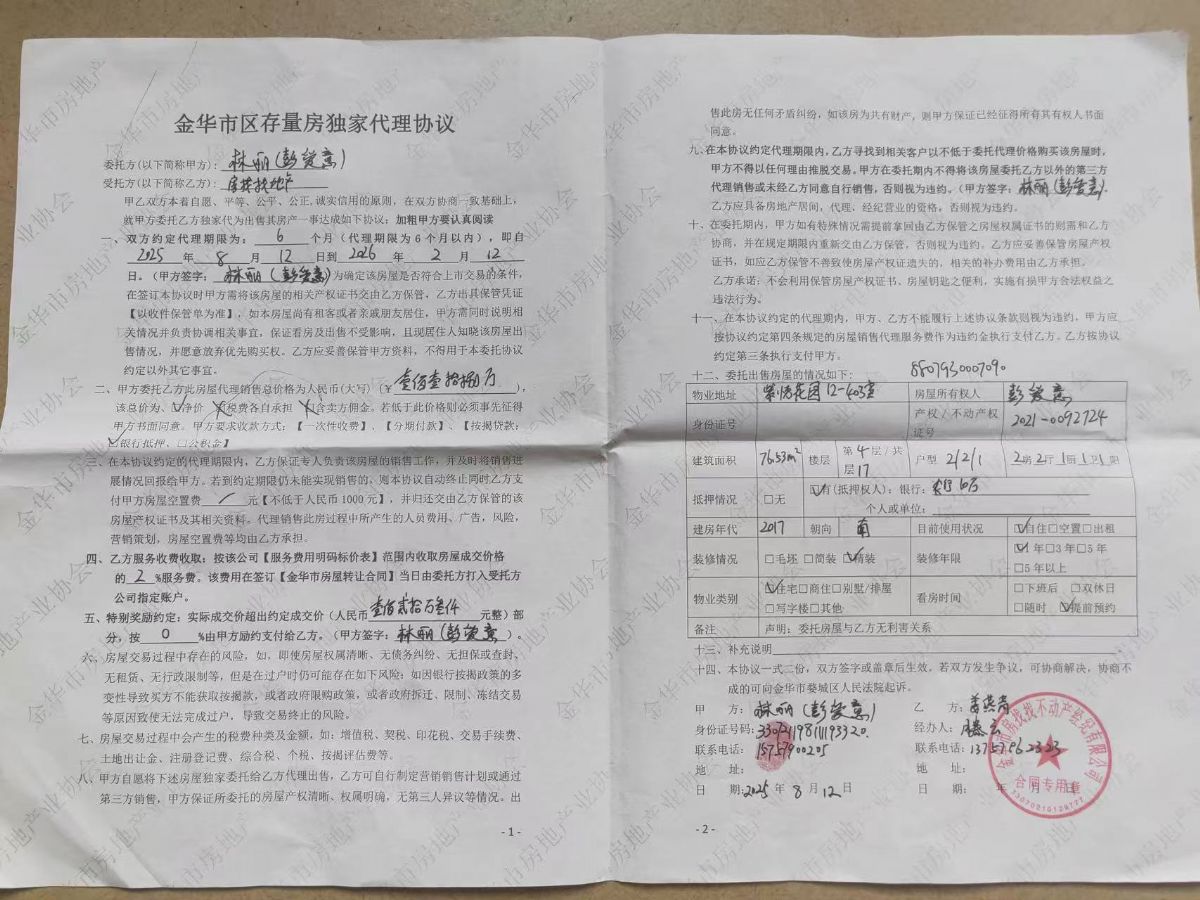 金华市区存量房独家代理协议
委托方(以下简称甲方)：林丽(彭 意)
受托方(以下简称乙方)：房 找地产
甲乙双方本着自愿、平等、公平、公正,诚实信用的原则，在双方协商一致基础上，
就甲方委托乙方独家代为出售其房产一事达成如下协议：加粗甲方要认真阅读
一、双方约定代理期限为：6个月（代理期限为6个月以内），即自
2025年8月12日到2026年2月12
日。（甲方签字：林丽(彭 意)为确定该房屋是否符合上市交易的条件，
在签订本协议时甲方需将该房屋的相关产权证书交由乙方保管，乙方出具保管凭证
【以收件保管单为准】，如本房屋尚有租客或者亲戚朋友居住，甲方需同时说明相
关情况并负责协调相关事宜，保证看房及出售不受影响，且现居住人知晓该房屋出
售情况，并愿意放弃优先购买权。乙方应妥善保管甲方资料，不得用于本委托协议
约定以外其它事宜。
二、甲方委托乙方此房屋代理销售总价格为人民币(大写)（￥壹佰壹拾 万），
该总价为、☑净价 税费各自承担 含卖方佣金。若低于此价格则必须事先征得
甲方书面同意。甲方要求收款方式：【一次性收费】、【分期付款】、【按揭贷款：
☑银行抵押、□公积金】
三、在本协议约定的代理期限内，乙方保证专人负责该房屋的销售工作，并及时将销售进
展情况回报给甲方。若到约定期限仍未能实现销售的，则本协议自动终止同时乙方支
付甲方房屋空置费 / 元【不低于人民币1000元】，并归还交由乙方保管的该
房屋产权证书及其相关资料。代理销售此房过程中所产生的人员费用、广告，风险，
营销策划，房屋空置费等均由乙方承担。
四、乙方服务收费收取：按该公司【服务费用明码标价表】范围内收取房屋成交价格
的 2 %服务费。该费用在签订【金华市房屋转让合同】当日由委托方打入受托方
公司指定账户。
五、特别奖励约定：实际成交价超出约定成交价（人民币壹佰贰拾万叁仟 元整）部
分，按 0 %由甲方励约支付给乙方。（甲方签字：林丽(彭 意)）。
六、房屋交易过程中存在的风险，如，即使房屋权属清晰、无债务纠纷、无担保或查封、
无租赁、无行政限制等，但是在过户时仍可能存在如下风险：如因银行按揭政策的多
变性导致买方不能获取按揭款，或者政府限购政策，或者政府拆迁、限制、冻结交易
等原因致使无法完成过户，导致交易终止的风险。
七、房屋交易过程中会产生的税费种类及金额。如：增值税、契税、印花税、交易手续费、
土地出让金、注册登记费、综合税、个税，按揭评估费等。
八、甲方自愿将下述房屋独家委托给乙方代理出售，乙方可自行制定营销销售计划或通过
第三方销售，甲方保证所委托的房屋产权清晰、权属明确，无第三人异议等情况。出
-1-
售此房无任何矛盾纠纷，如该房为共有财产，则甲方保证已经征得所有其有权人书面
同意。
九、在本协议约定代理期限内，乙方寻找到相关客户以不低于委托代理价格购买该房屋时，
甲方不得以任何理由推脱交易。甲方在委托期内不得将该房屋委托乙方以外的第三方
代理销售或未经乙方同意自行销售，否则视为违约。（甲方签字：林丽(彭 意)
乙方应具备房地产居间，代理、经纪营业的资格，否则视为违约。
十、在委托期内，甲方如有特殊情况需提前拿回由乙方保管之房屋权属证书的则需和乙方
协商，并在规定期限内重新交由乙方保管，否则视为违约。乙方应妥善保管房屋产权
证书，如应乙方保管不善致使房屋产权证遗失的，相关的补办费用由乙方承担。
乙方承诺：不会利用保管房屋产权证书、房屋钥匙之便利，实施有损甲方合法权益之
违法行为。
十一、在本协议约定的代理期内，甲方、乙方不能履行上述协议条款则视为违约，甲方应
按协议约定第四条规定的房屋销售代理服务费作为违约金执行支付乙方。乙方按协议
约定第三条执行支付甲方。
十二、委托出售房屋的情况如下： 8807930007090
物业地址 紫 花园12-403室 房屋所有权人 彭 意
身份证号 产权/不动产权证号 2021-0092724
建筑面积 76.53m² 楼层 第4层/共层17 户型 2/2/1 2房2厅1厨1卫1阳
抵押情况 □无 ☑有(抵押权人)：银行： 60万
个人或单位：
建房年代 2017 朝向 南 目前使用状况 ☑自住□空置□出租
装修情况 □毛坯 □简装 ☑精装 装修年限 ☑1年□3年□5年
□5年以上
物业类别 ☑住宅□商住□别墅/排屋
□写字楼□其他
看房时间 □下班后 □双休日
□随时 ☑提前预约
备注 声明：委托房屋与乙方无利害关系
十三、补充说明
十四、本协议一式二份，双方签字或盖章后生效。若双方发生争议，可协商解决，协商不
成的可向金华市婺城区人民法院起诉。
甲 方：林丽(彭 意) 乙 方：姜燕青
身份证号码：330721198111193320 经办人：
联系电话：15757900205 联系电话：13757862323
地 址： 地 址：
日 期：2025年8月12日 日 期： 年 月 日
金华市房找找不动产经纪有限公司
合同专用章
-2-